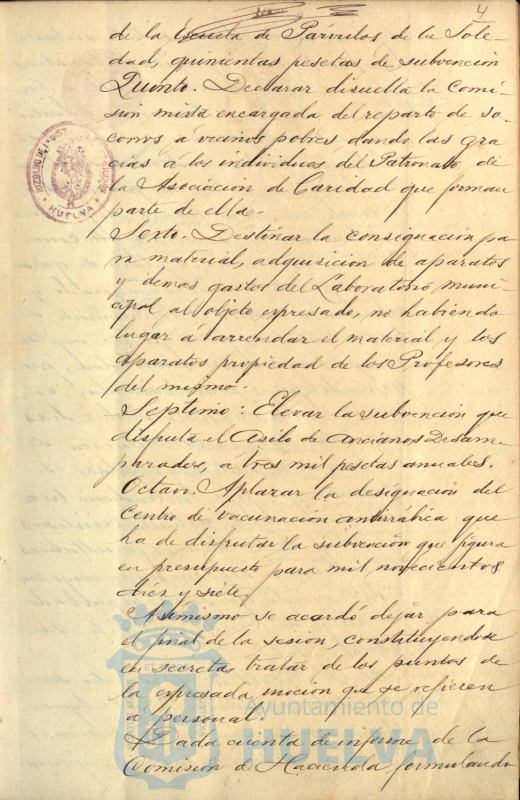 4
de la Escuela de Párvulos de la Sole-
dad, quinientas pesetas de subvención
Quinto. Declarar disuelta la Comi-
sión mixta encargada del reparto de so-
corros a vecinos pobres dando las gra-
cias a los individuos del Patronato de
la Asociación de Caridad que forman
parte de ella.
Sexto. Destinar la consignación pa-
ra material, adquisición de aparatos
y demas gastos del Laboratorio muni-
cipal, al objeto expresado, no habiendo
lugar á arrendar el material y los
aparatos propiedad de los Profesores
del mismo.
Septimo: Elevar la subvención que
disfruta el Asilo de Ancianos Desam-
parados, a tres mil pesetas anuales.
Octavo. Aplazar la designación del
Centro de vacunación antirrábica que
ha de disfrutar la subvención que figura
en presupuesto para mil novecientos
diéz y siete.
Asimismo se acordó dejar para
el final de la sesion, constituyendose
en secreta, tratar de los puntos de
la expresada moción que se refieren
a personal.
Dada cuenta de informe de la
Comisión de Hacienda, formulando
HUELVA
Ayuntamiento de
HUELVA